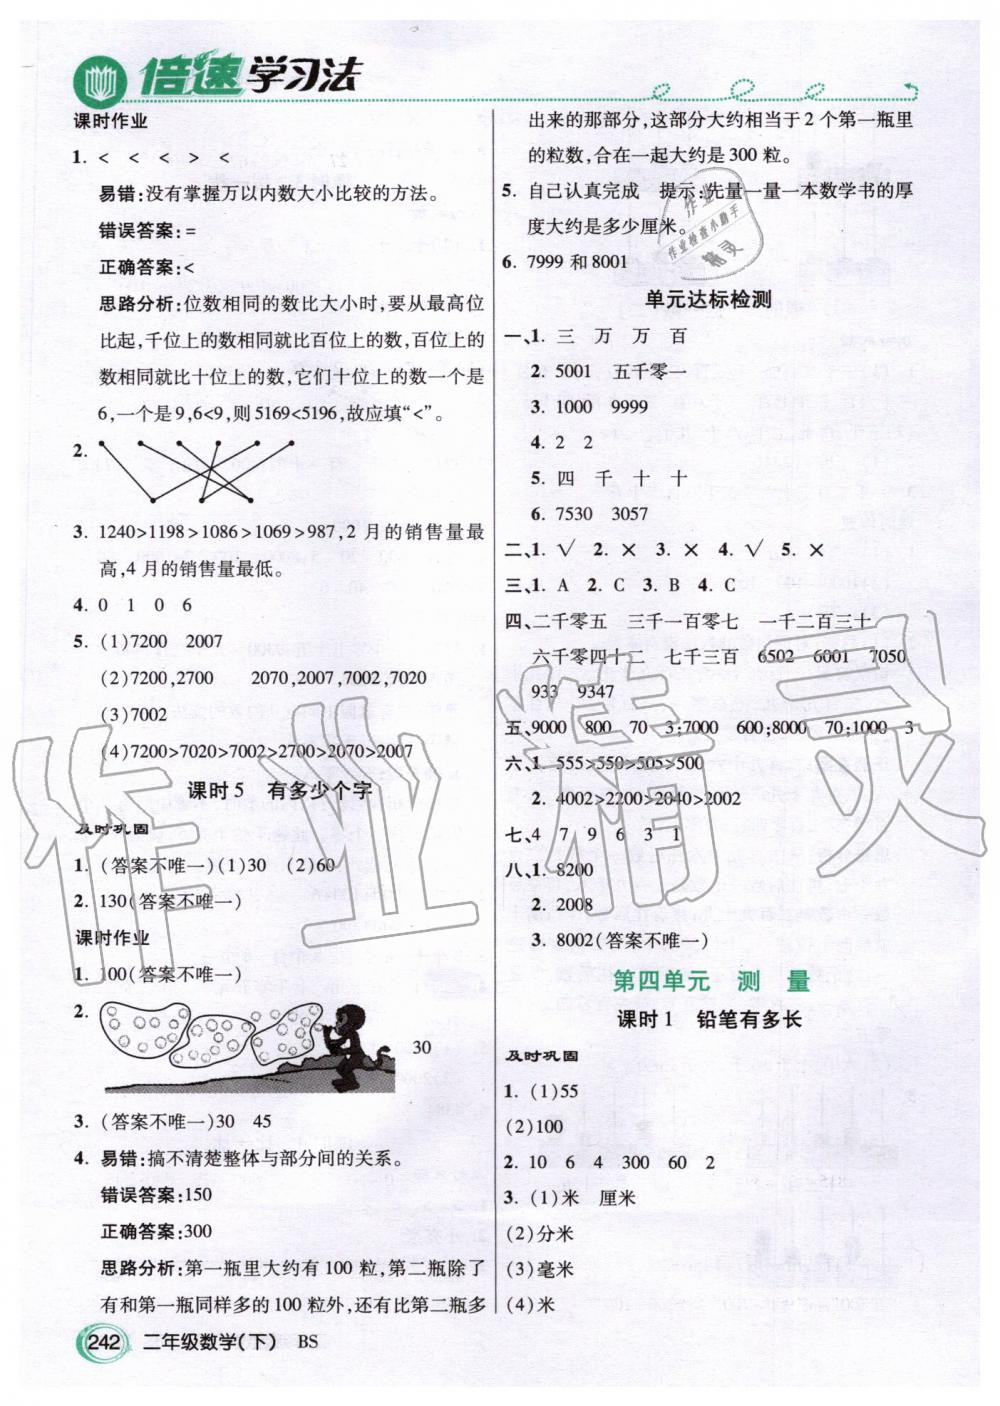 倍速学习法
课时作业
1. < < < > <
易错:没有掌握万以内数大小比较的方法。
错误答案:=
正确答案:<
思路分析:位数相同的数比大小时,要从最高位
比起,千位上的数相同就比百位上的数,百位上的
数相同就比十位上的数,它们十位上的数一个是
6,一个是9,6<9,则5169<5196,故应填“<”。
2.
3. 1240>1198>1086>1069>987,2月的销售量最
高,4月的销售量最低。
4. 0 1 0 6
5. (1)7200 2007
(2)7200,2700 2070,2007,7002,7020
(3)7002
(4)7200>7020>7002>2700>2070>2007
课时5 有多少个字
及时巩固
1. (答案不唯一)(1)30 (2)60
2. 130(答案不唯一)
课时作业
1. 100(答案不唯一)
2.
30
3. (答案不唯一)30 45
4. 易错:搞不清楚整体与部分间的关系。
错误答案:150
正确答案:300
思路分析:第一瓶里大约有100粒,第二瓶除了
有和第一瓶同样多的100粒外,还有比第二瓶多
出来的那部分,这部分大约相当于2个第一瓶里
的粒数,合在一起大约是300粒。
5. 自己认真完成 提示:先量一量一本数学书的厚
度大约是多少厘米。
6. 7999和8001
单元达标检测
一、1. 三 万 万 百
2. 5001 五千零一
3. 1000 9999
4. 2 2
5. 四 千 十 十
6. 7530 3057
二、1. √ 2. × 3. × 4. √ 5. ×
三、1. A 2. C 3. B 4. C
四、二千零五 三千一百零七 一千二百三十
六千零四十二 七千三百 6502 6001 7050
933 9347
五、9000 800 70 3;7000 600;8000 70;1000 3
六、1. 555>550>505>500
2. 4002>2200>2040>2002
七、4 7 9 6 3 1
八、1. 8200
2. 2008
3. 8002(答案不唯一)
第四单元 测 量
课时1 铅笔有多长
及时巩固
1. (1)55
(2)100
2. 10 6 4 300 60 2
3. (1)米 厘米
(2)分米
(3)毫米
(4)米
242 二年级数学(下) BS
作业
作业检查小助手
精灵
作业精灵